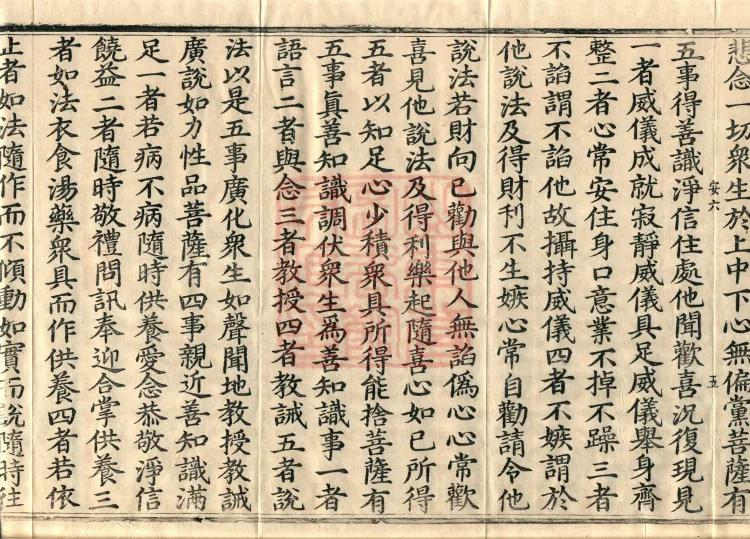 悲念一切衆生於上中下心無偏黨菩薩有
五事得善識淨信住處他聞歡喜況復現見
安六
五
一者威儀成就寂靜威儀具足威儀舉身齊
整二者心常安住身口意業不掉不躁三者
不諂謂不諂他故攝持威儀四者不嫉謂於
他說法及得財利不生嫉心常自勸請令他
說法若財向已勸與他人無諂僞心心常歡
喜見他說法及得利樂起隨喜心如已所得
五者以知足心少積衆具所得能捨菩薩有
五事真善知識調伏衆生爲善知識事一者
語言二者與念三者教授四者教誡五者說
法以是五事廣化衆生如聲聞地教授教誡
廣說如力性品菩薩有四事親近善知識滿
足一者若病不病隨時供養愛念恭敬淨信
饒益二者隨時敬禮問訊奉迎合掌供養三
者如法衣食湯藥衆具而作供養四者若依
止者如法隨作而不傾動如實而說隨時往